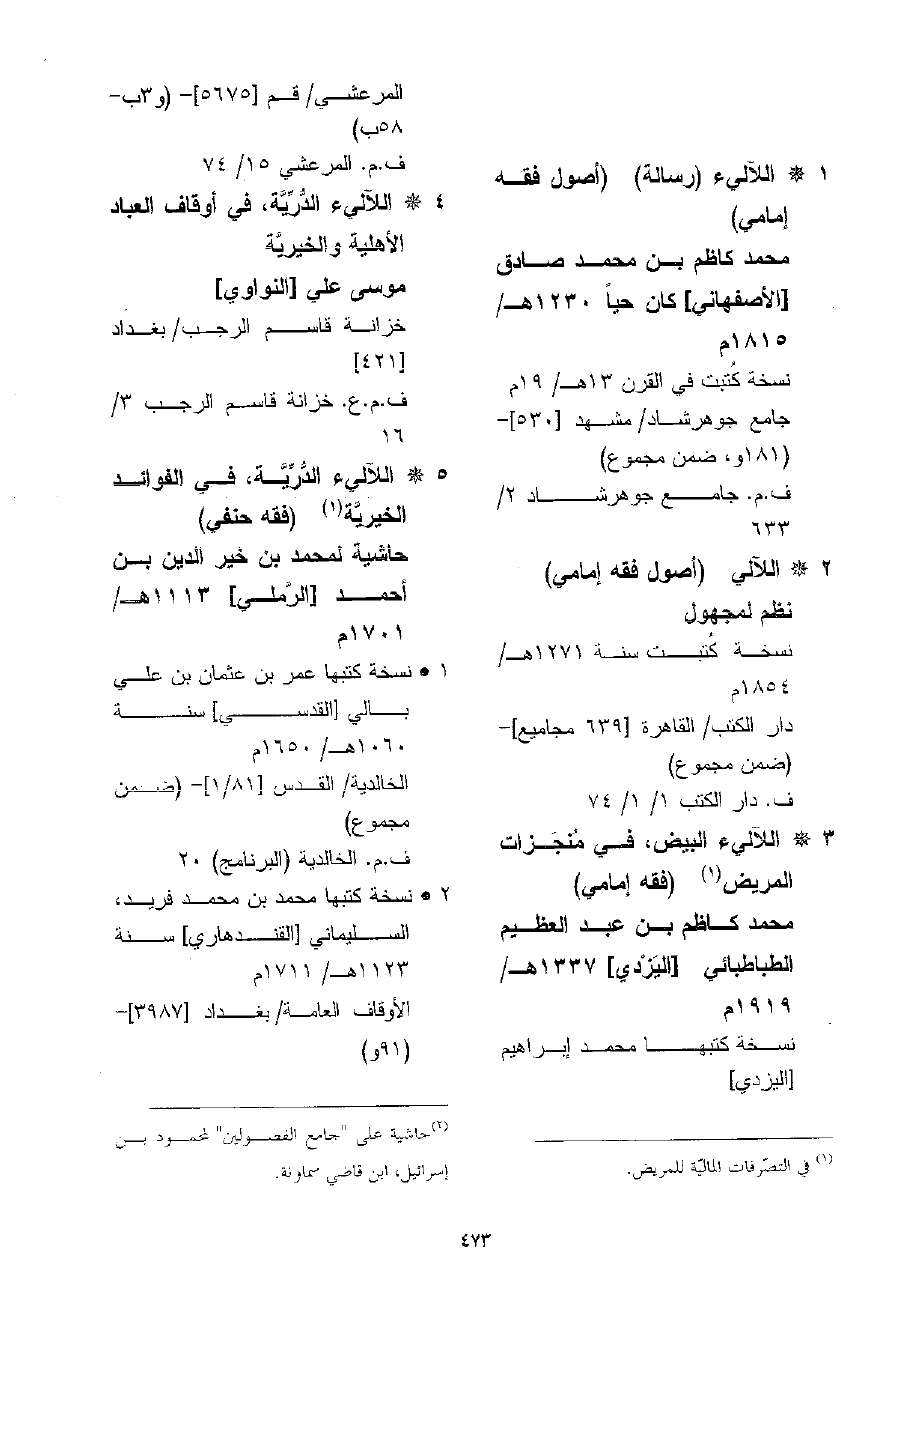 ١ * اللآليء (رسالة) (أصول فقه
إمامي)
محمد كاظم بن محمد صادق
[الأصفهاني] كان حياً ١٢٣٠هـ/
١٨١٥م
نسخة كُتبت في القرن ١٣هـ/ ١٩م
جامع جوهرشاد/ مشهد [٥٣٠]-
(١٨١و، ضمن مجموع)
ف.م. جامع جوهرشاد ٢/
٦٣٣
٢ * اللآلي (أصول فقه إمامي)
نظم لمجهول
نسخة كُتبت سنة ١٢٧١هـ/
١٨٥٤م
دار الكتب/ القاهرة [٦٣٩ مجاميع]-
(ضمن مجموع)
ف. دار الكتب ١/ ١/ ٧٤
٣ * اللآليء البيض، في مُنجَزات
المريض(١) (فقه إمامي)
محمد كاظم بن عبد العظيم
الطباطبائي [اليَزْدي] ١٣٣٧هـ/
١٩١٩م
نسخة كتبها محمد إبراهيم
[اليزدي]
(١) في التصّرفات الماليّة للمريض.
المرعشي/ قم [٥٦٧٥]- (و٣ب-
٥٨ب)
ف.م. المرعشي ١٥/ ٧٤
٤ * اللآليء الدُّرِّيَّة، في أوقاف العباد
الأهلية والخيريَّة
موسى علي [النواوي]
خزانة قاسم الرجب/ بغداد
[٤٢١]
ف.م.ع. خزانة قاسم الرجب ٣/
١٦
٥ * اللآليء الدُّرِّيَّة، في الفوائد
الخيريَّة(١) (فقه حنفي)
حاشية لمحمد بن خير الدين بن
أحمد [الرَّملي] ١١١٣هـ/
١٧٠١م
١ • نسخة كتبها عمر بن عثمان بن علي
بالي [القدسي] سنة
١٠٦٠هـ/ ١٦٥٠م
الخالدية/ القدس [١/٨١]- (ضمن
مجموع)
ف.م. الخالدية (البرنامج) ٢٠
٢ • نسخة كتبها محمد بن محمد فريد،
السليماني [القندهاري] سنة
١١٢٣هـ/ ١٧١١م
الأوقاف العامة/ بغداد [٣٩٨٧]-
(٩١و)
(٢) حاشية على "جامع الفصولين" لمحمود بن
إسرائيل، ابن قاضي سماونة.
٤٧٣